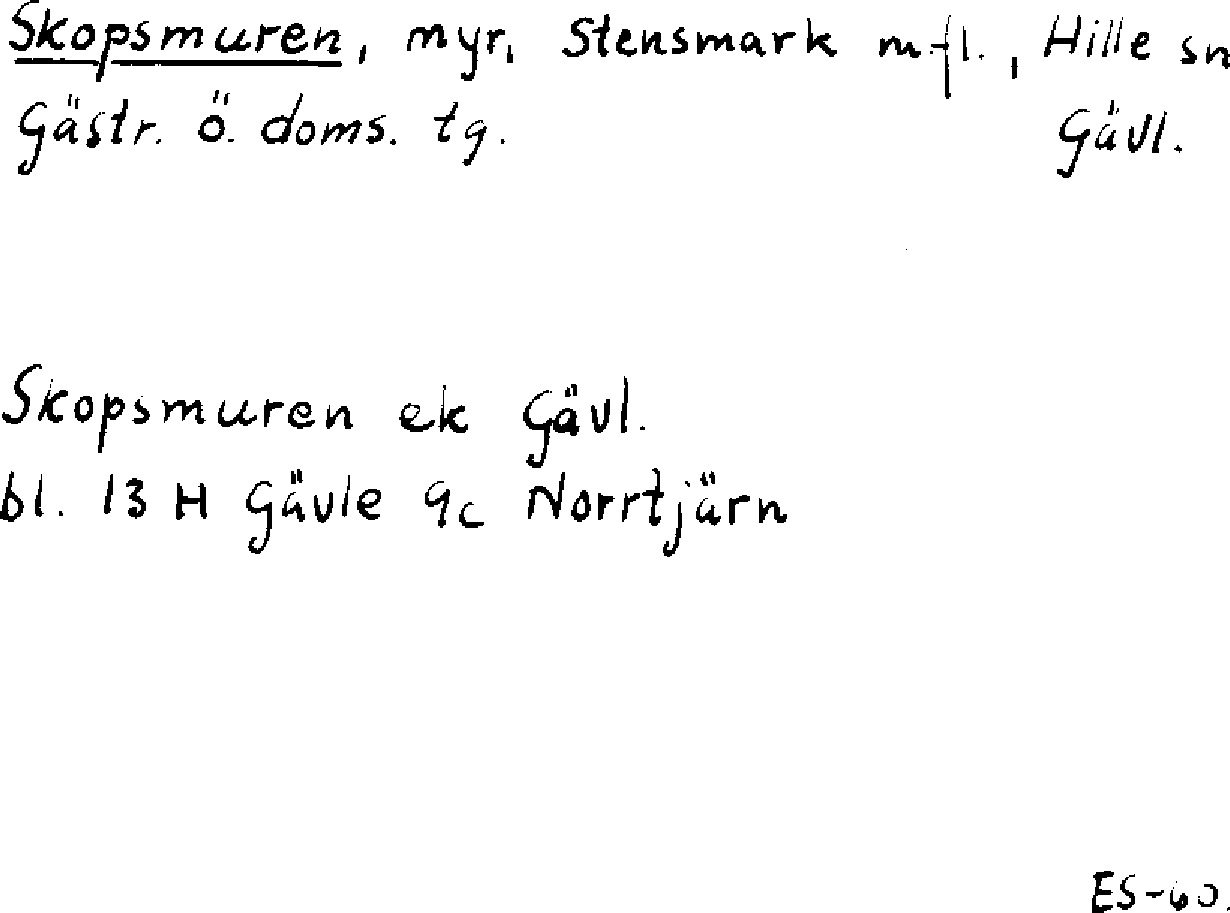 Skopsmuren, myr, Stensmark m.fl., Hille sn
Gästr. ö. doms. tg. Gävl.
Skopsmuren ek Gävl.
bl. 13 H Gävle 9c Norrtjärn
ES-60.